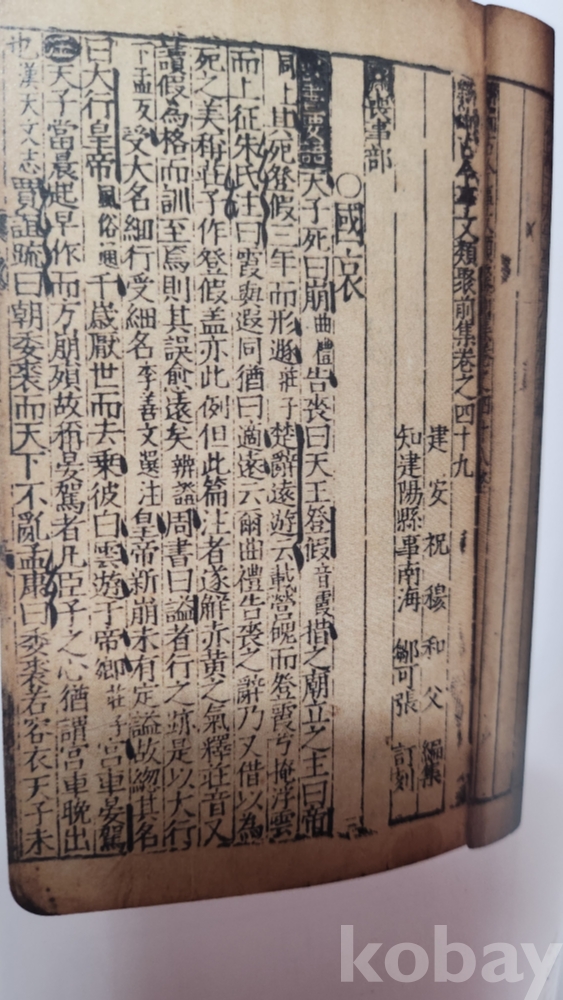 古今事文類聚前集卷之四十九
建安祝穆和父 編集
知建陽縣事南海 鄒可張 訂刻
喪事部
○國哀
羣書要語 天子死曰崩曲禮告喪曰天王登假音霞措之廟立之主曰帝
同上其死登假三年而形遯莊子楚辭遠遊云載營魄而登霞兮掩浮雲
而上征朱氏注曰霞與遐同猶曰適遠云爾曲禮告喪之辭乃又借以為
死之美稱莊子作登假盖亦此例但此篇注者遂解亦黃之氣釋莊音又
讀假為格而訓至焉則其誤愈遠矣辨證周書曰謚者行之跡是以大行
受大名細行受細名李善文選注皇帝新崩未有定謚故緫其名
曰大行皇帝風俗通千歲厭世而去乘彼白雲遊于帝鄉莊子宮車晏駕
天子當晨起早作而方崩殞故稱晏駕者凡臣子之心猶謂宮車晚出
也漢天文志賈誼疏曰朝委裘而天下不亂孟康曰委裘若容衣天子未
kobay